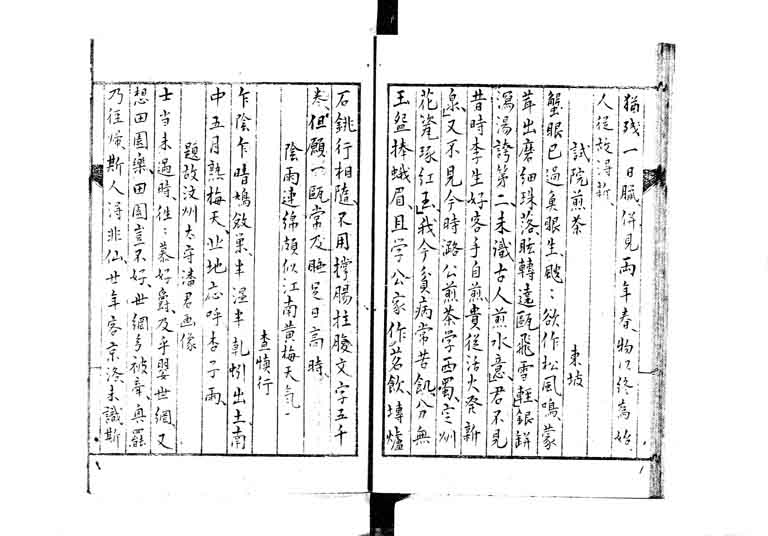 猶殘一日臘併見兩年春物以終為始
人從故得新
試院煎茶
東坡
蟹眼已過魚眼生颼〻欲作松風鳴蒙
茸出磨細珠落眩轉遶甌飛雪輕銀缾
瀉湯誇第二未識古人煎水意君不見
昔時李生好客手自煎貴從活火發新
泉又不見今時潞公煎茶學西蜀定州
花瓷琢紅玉我今貧病常苦飢分無
玉盌捧蛾眉且学公家作茗飲塼爐
石銚行相隨不用撐腸拄腹文字五千
卷但願一甌常及睡足日高時
陰雨連綿頗似江南黄梅天氣
查慎行
乍陰乍晴鳩斂巢半濕半乾蚓出土南
中五月熟梅天北地応呼杏子雨
題故汶州太守潘君画像
士当未遇時徃〻慕好爵及乎嬰世網又
想田園樂田園豈不好世網多被牽奥羅
乃徃㑹斯人得非仙廿年客京洛未識斯